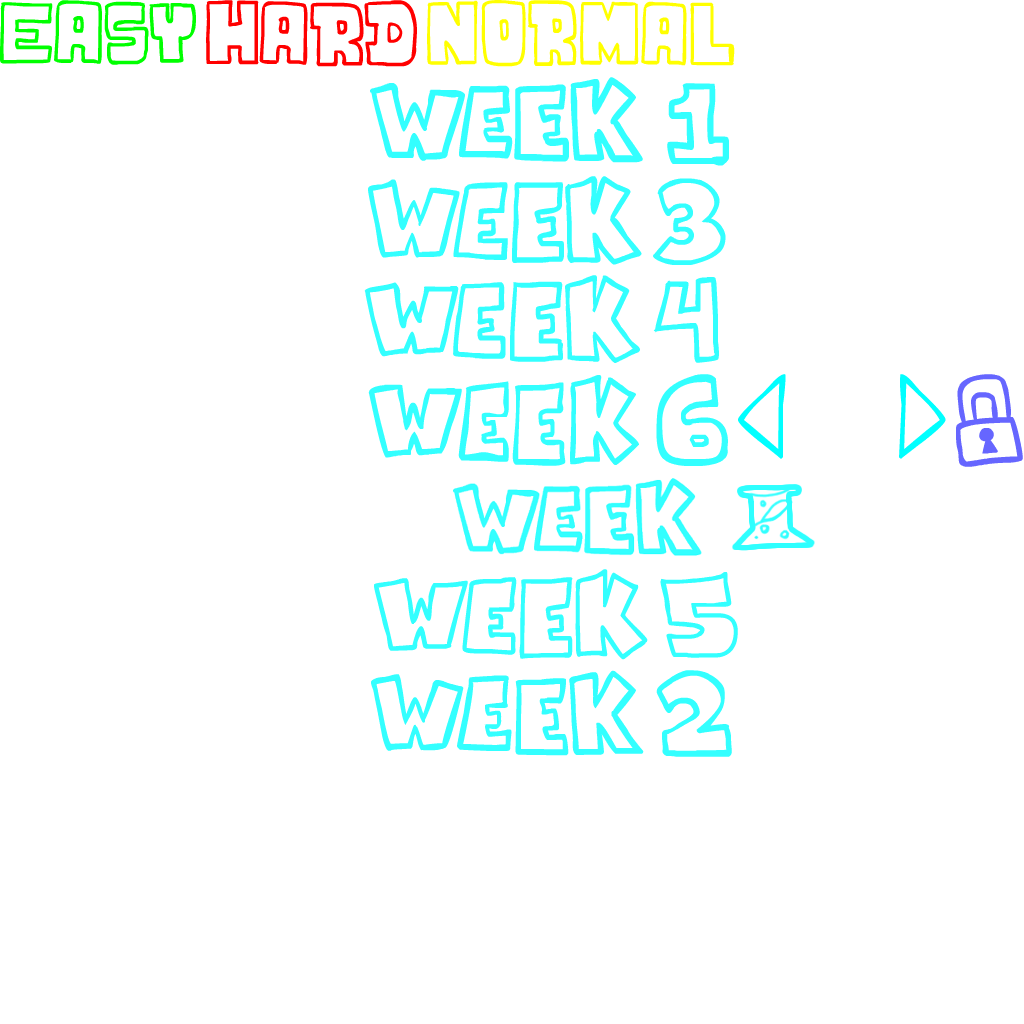 EASY HARD NORMAL
WEEK 1
WEEK 3
WEEK 4
WEEK 6
WEEK
WEEK 5
WEEK 2